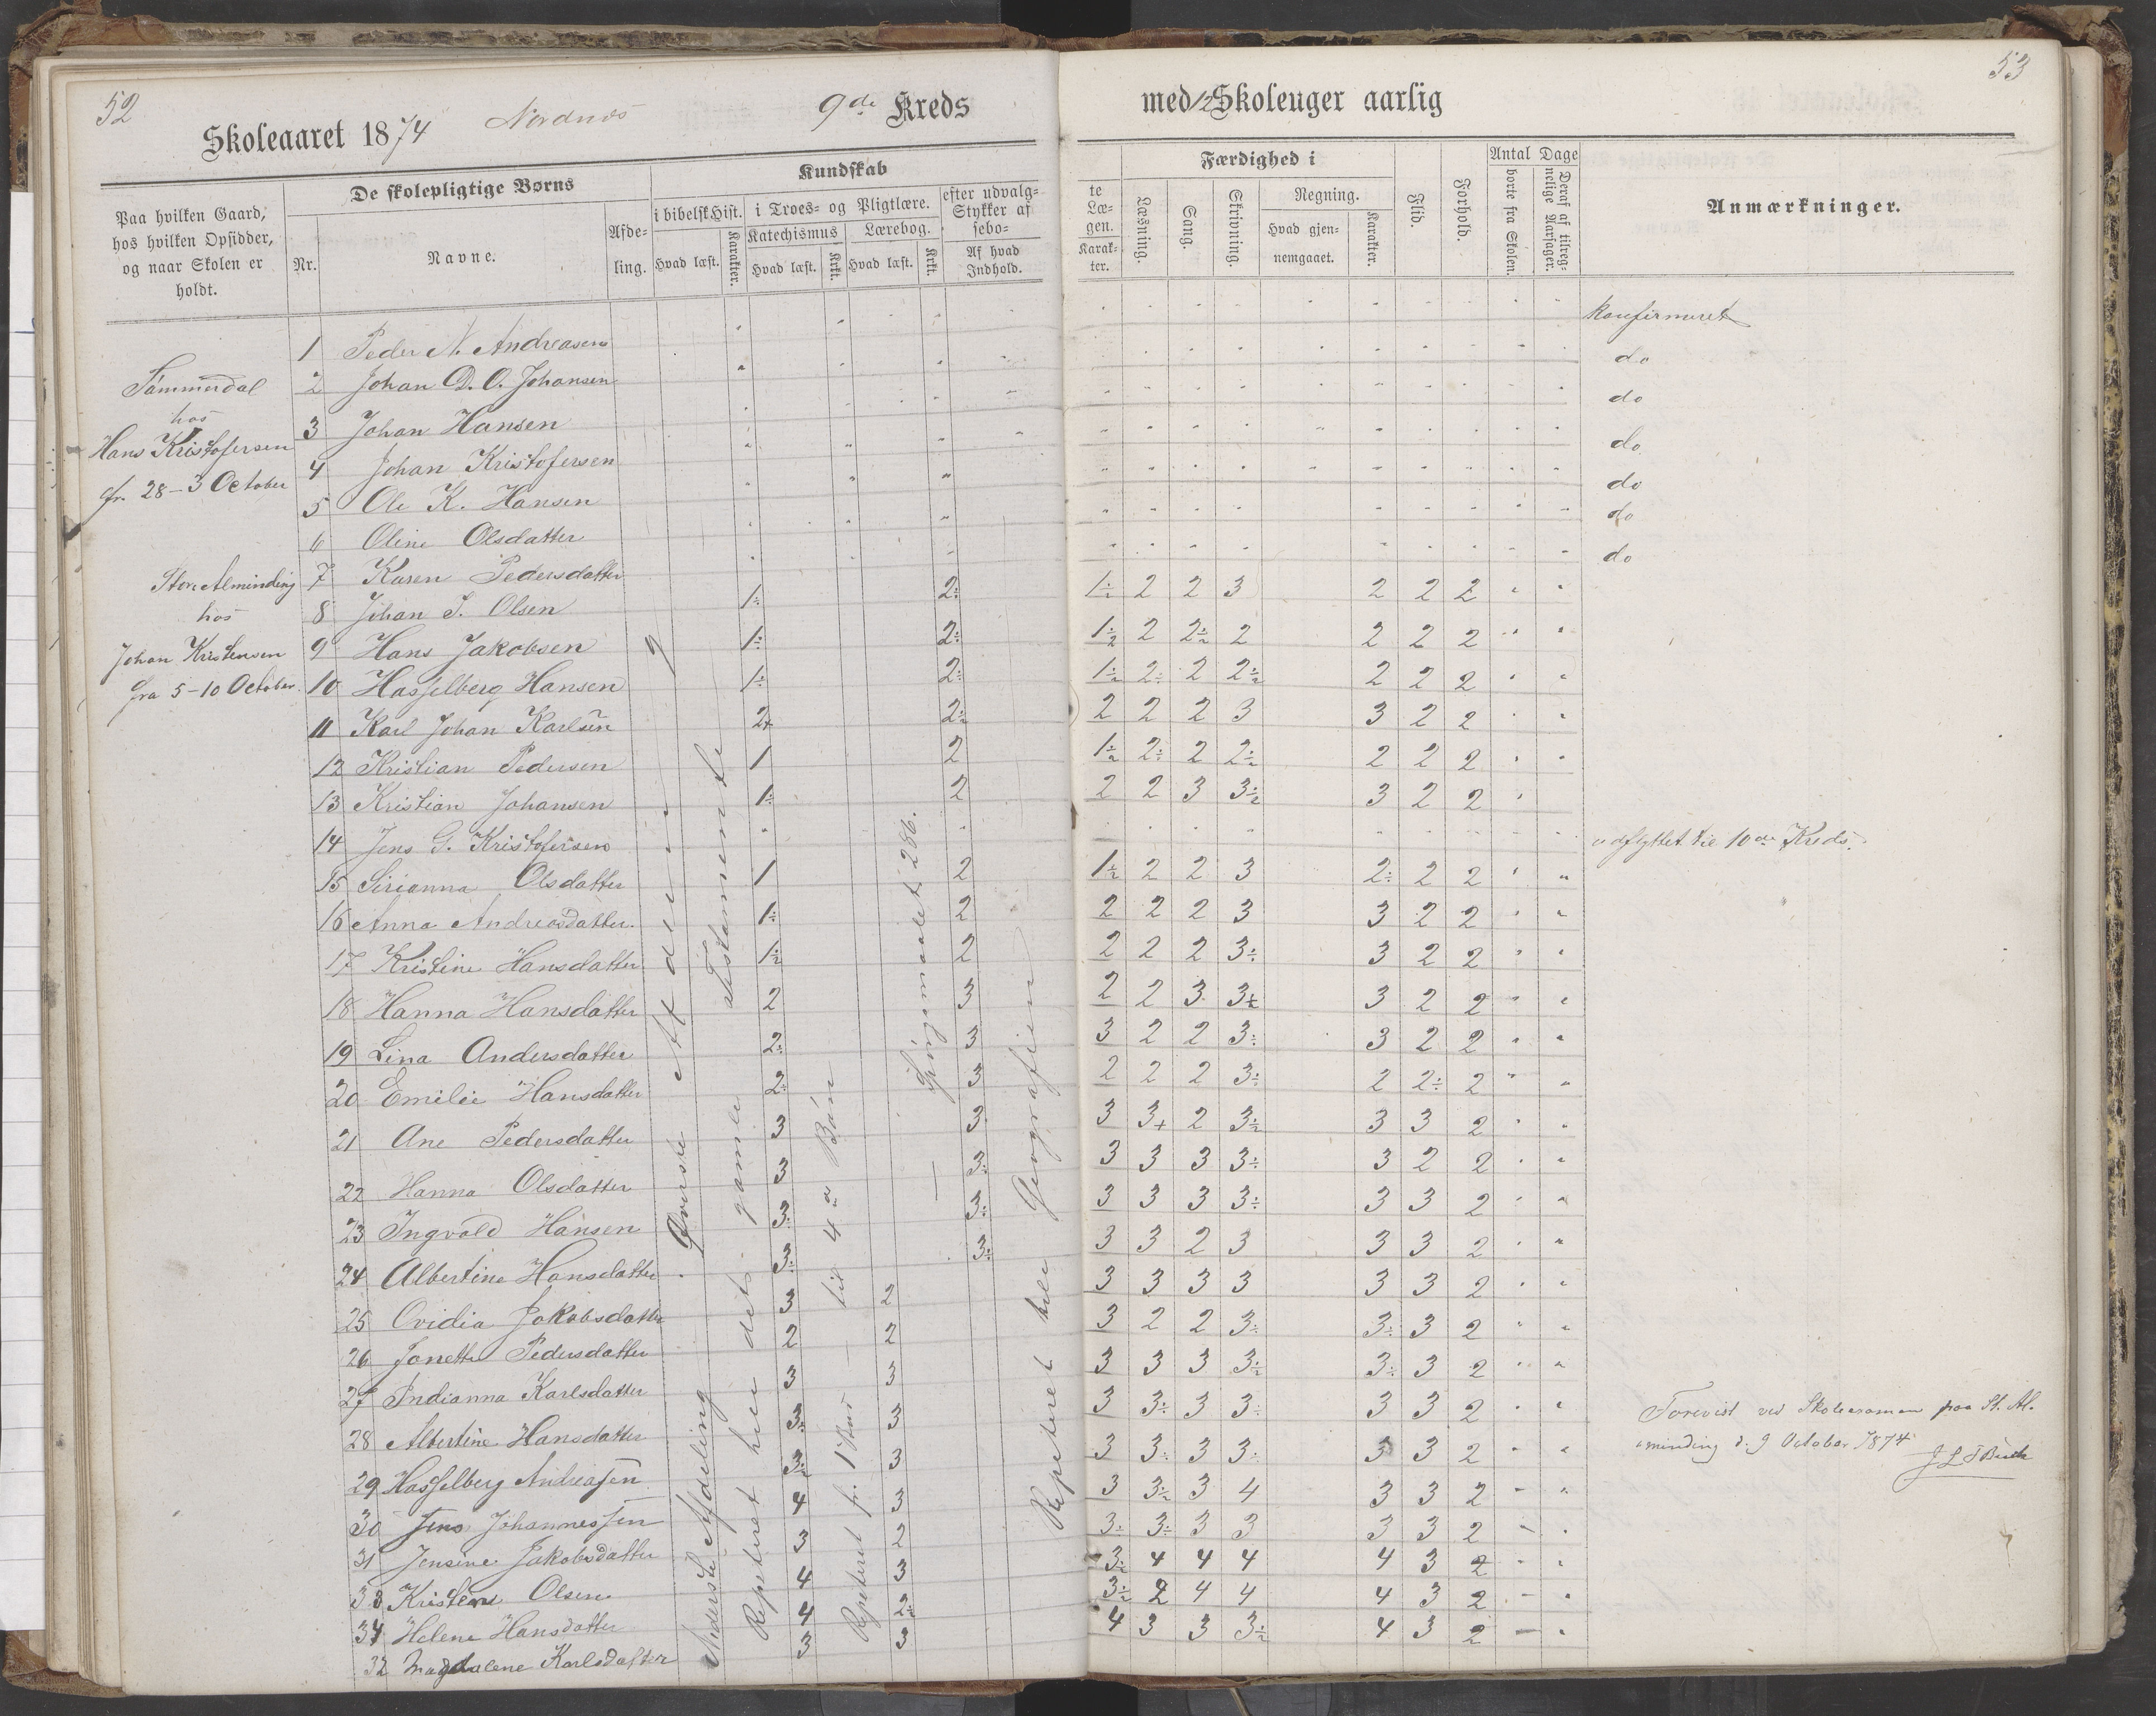 52
Skoleaaret 1874 Nordnæs 9de Kreds
Paa hvilken Gaard,
hos hvilken Opsidder,
og naar Skolen er
holdt.
De skolepligtige Børns
Nr.
Navne.
Afde-
ling.
Kundskab
i bibelsk Hist.
Hvad læst.
Karakter.
i Troes- og Pligtlære.
Katechismus
Hvad læst.
Krkt.
Lærebog.
Hvad læst.
Krkt.
efter udvalg-
Stykker af
sebo-
Af hvad
Indhold.
Sømmerdal
hos
Hans Kristofersen
fr. 28-3 October
Store Alminding
hos
Johan Kristensen
fra 5-10 October.
1 Peder N. Andreasen
2 Johan D. O. Johansen
3 Johan Hansen
4 Johan Kristofersen
5 Ole K. Hansen
6 Oline Olsdatter
7 Karen Pedersdatter
8 Johan J. Olsen 1÷ 2÷
9 Hans Jakobsen 1÷ 2÷
10 Hasselberg Hansen 1÷ 2÷
11 Karl Johan Karlsen 2+ 2÷
12 Kristian Pedersen 1 2
13 Kristian Johansen 1÷ 2
14 Jens G. Kristofersen
15 Sirianna Olsdatter 1 2
16 Anna Andreasdatter. 1÷ 2
17 Kristine Hansdatter 1÷ 2
18 Hanna Hansdatter 2 3
19 Lina Andersdatter 2÷ 3
20 Emilie Hansdatter 2÷ 3
21 Ane Pedersdatter 3 3
22 Hanna Olsdatter 3 3÷
23 Ingvald Hansen 3÷ 3÷
24 Albertine Hansdatter 3÷ 3÷
25 Ovidia Jakobsdatter 3 2
26 Jonette Pedersdatter 2 2
27 Indianna Karlsdatter 3 3
28 Albertine Hansdatter 3÷ 3
29 Hasselberg Andreasen 3÷ 3
30 Jens Johannessen 4 3
31 Jensine Jakobsdatter 3 2
33 Kristen Olsen 4 3
34 Helene Hansdatter 4 2÷
32 Magdalene Karlsdatter 3 3
Øverste Afdeling
Nederste Afdeling
Repeteret hele det gamle Testamente
Repeteret fr. 1ste til 4de Bøn
Spørgsmaalet 286.
Repeteret hele Geografien
53
med 12 Skoleuger aarlig
te
Læ-
gen.
Karak-
ter.
Færdighed i
Læsning.
Sang.
Skrivning.
Regning.
Hvad gjen-
nemgaaet.
Karakter.
Flid.
Forhold.
Antal Dage
borte fra Skolen.
Deraf af tilreg-
nelige Aarsager.
Anmærkninger.
konfirmeret
do
do
do
do
do
do
1÷ 2 2 3 2 2 2
1÷ 2 2÷ 2 2 2 2
1÷ 2÷ 2 2÷ 2 2 2
2 2 2 3 3 2 2
1÷ 2÷ 2 2÷ 2 2 2
2 2 3 3÷ 3 2 2
udflyttet til 10de Kreds.
1÷ 2 2 3 2÷ 2 2
2 2 2 3 3 2 2
2 2 2 3÷ 3 2 2
2 2 3 3+ 3 2 2
3 2 2 3÷ 3 2 2
2 2 2 3÷ 2 2÷ 2
3 3+ 2 3÷ 3 3 2
3 3 3 3÷ 3 2 2
3 3 3 3÷ 3 3 2
3 3 2 3 3 3 2
3 3 3 3 3 3 2
3 2 2 3÷ 3÷ 3 2
3 3 3 3÷ 3÷ 3 2
3 3÷ 3 3÷ 3 3 2
3 3÷ 3 3÷ 3 3 2
3 3÷ 3 4 3 3 2
3÷ 3÷ 3 3 3 3 2
3÷ 4 4 4 4 3 2
3÷ 2 4 4 4 3 2
4 3 3 3÷ 4 3 2
Forevist ved Skoleexamen paa St. Al-
minding d. 9 October 1874